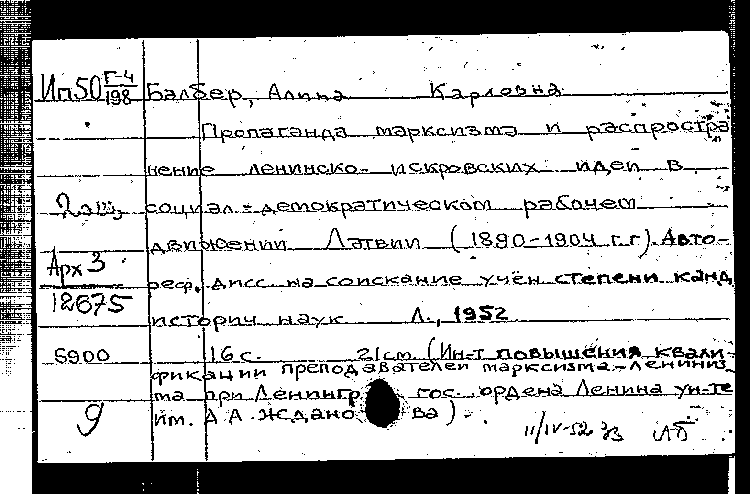 Ип50 Г-4/198 Балбер, Алина Карловна
Пропаганда марксизма и распростра
нение ленинско-искровских идей в
социал-демократическом рабочем
движении Латвии (1890-1904 г.г.). Авто-
Арх 3
12675
реф. дисс. на соискание учён степени канд
историч. наук Л., 1952
5900 16 с. 21 см. (Ин-т повышения квали-
фикации преподавателей марксизма-лениниз
ма при Ленингр гос. ордена Ленина ун-те
им. А А Ждано ва).
9
11/IV-52